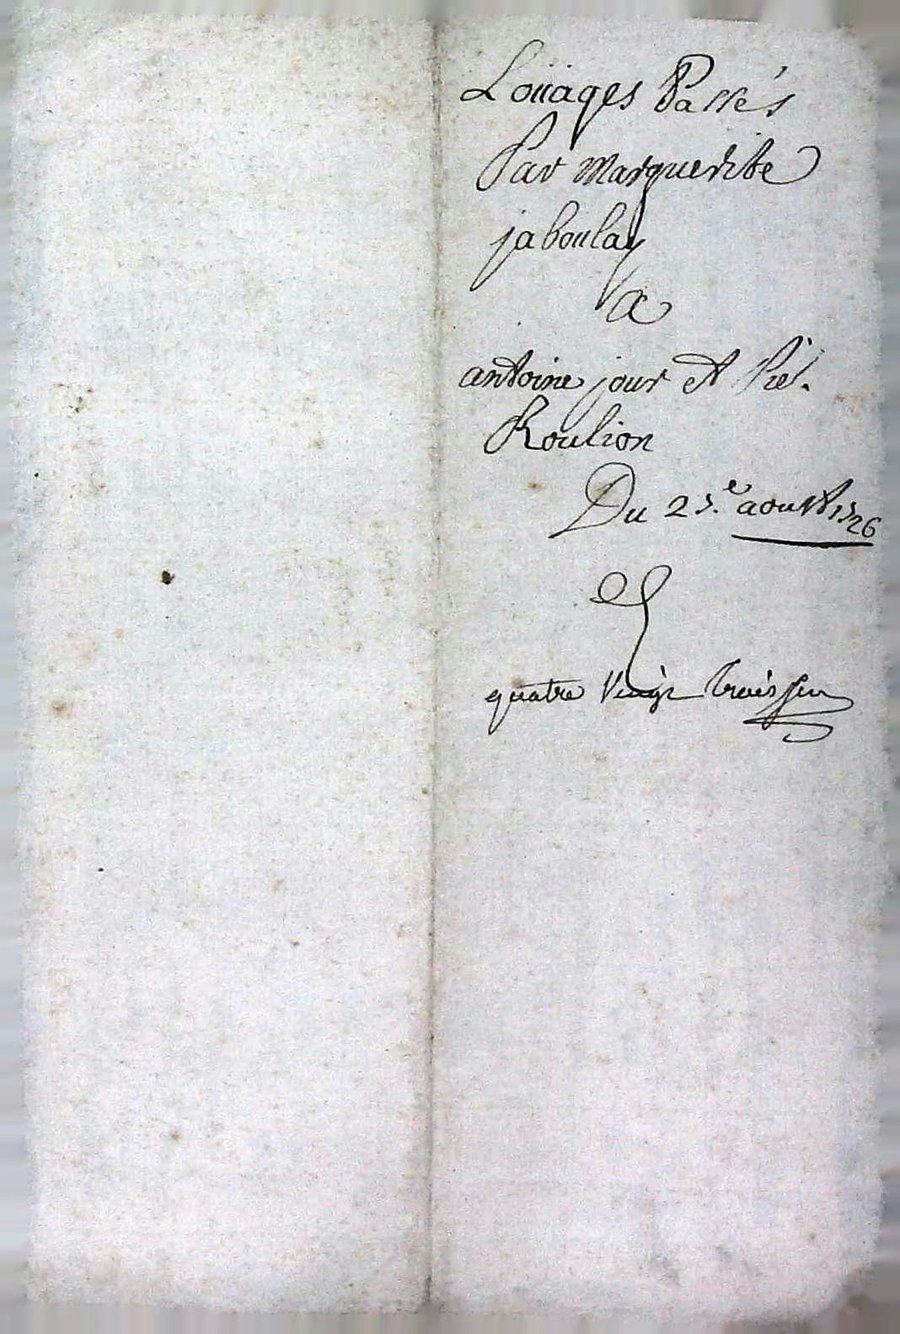 Loüages Passés
Par Marguerite
jaboulay
a
antoine jour et
Roulion
Du 25.e aoust 1726
quatre Vingt trois